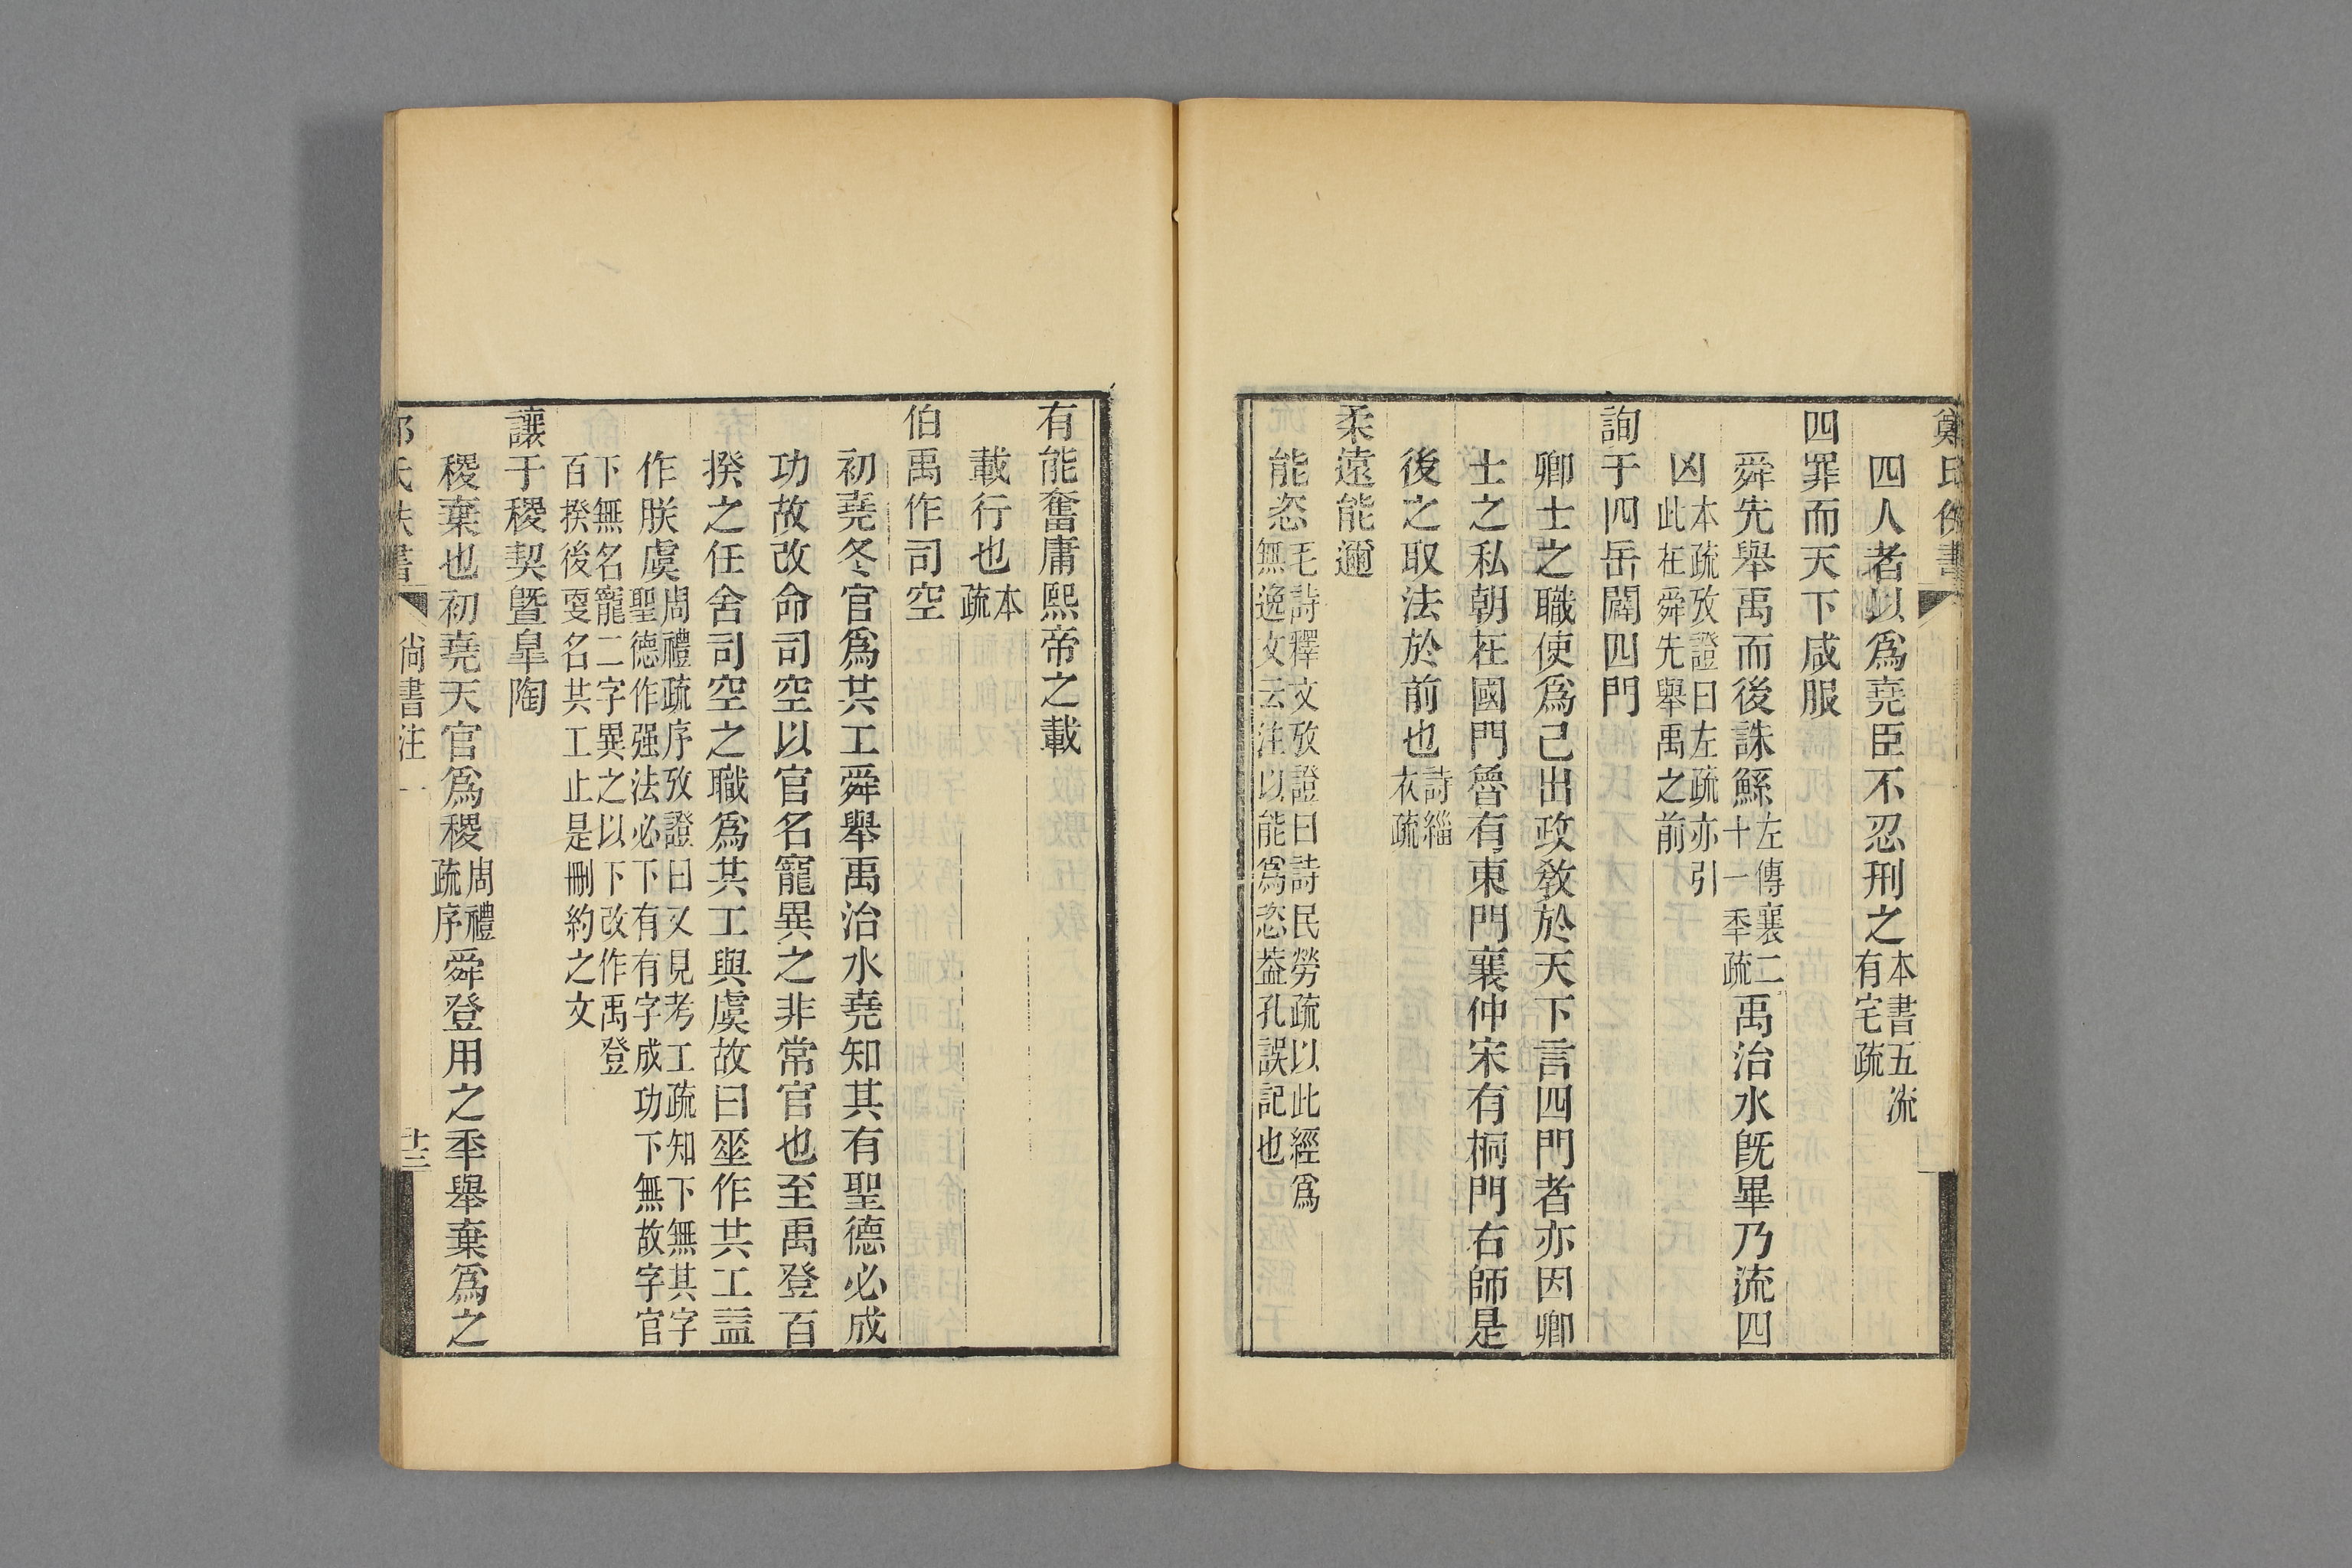 鄭氏佚書
四人者以爲堯臣不忍刑之本書五流有宅疏
四罪而天下咸服
舜先舉禹而後誅鯀左傳襄二十一秊疏禹治水旣畢乃流四
凶本疏攷證曰左疏亦引此在舜先舉禹之前
詢于四岳闢四門
卿士之職使爲己出政敎於天下言四門者亦因卿
士之私朝在國門魯有東門襄仲宋有桐門右師是
後之取法於前也詩緇衣疏
柔遠能邇
能恣毛詩釋文攷證曰詩民勞疏以此經爲無逸文云注以能爲恣葢孔誤記也
有能奮庸熙帝之載
載行也本疏
伯禹作司空
初堯冬官爲共工舜舉禹治水堯知其有聖德必成
功故改命司空以官名寵異之非常官也至禹登百
揆之任舍司空之職爲共工與虞故曰垂作共工益
作朕虞周禮疏序攷證曰又見考工疏知下無其字聖德作强法必下有有字成功下無故字官
下無名寵二字異之以下改作禹登百揆後更名共工止是刪約之文
讓于稷契曁臯陶
稷棄也初堯天官爲稷周禮疏序舜登用之秊舉棄爲之
尙書注一 十三